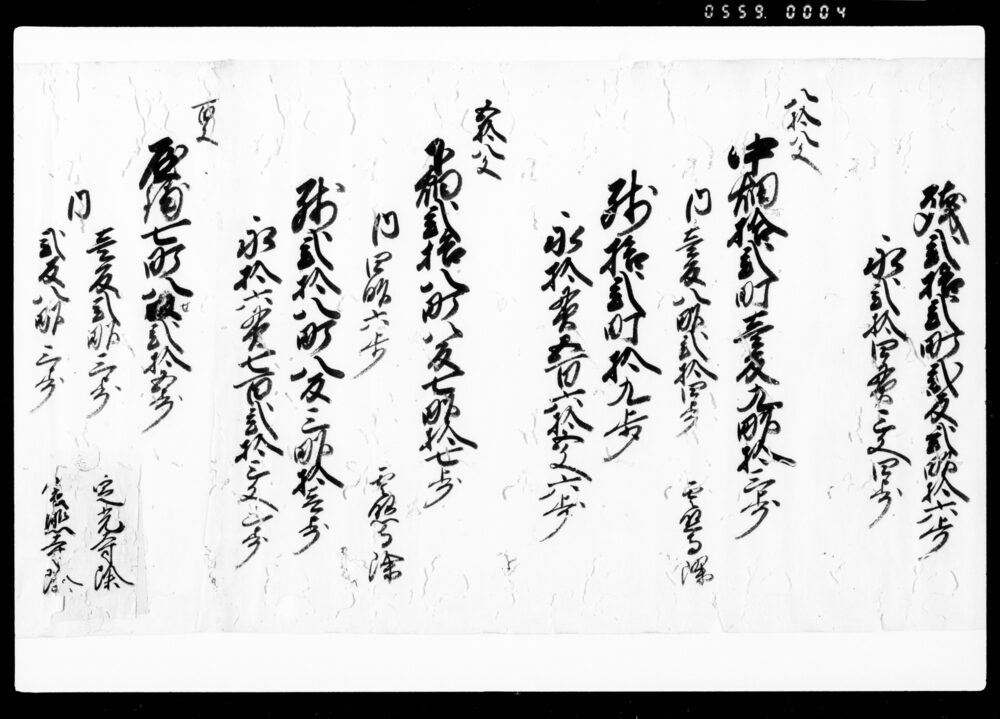 0559. 0004
残弐拾弐町弐反弐畝拾六歩
永弐拾四貫三文四分
八拾八文
中畑拾弐町壱反九畝拾三歩
内壱反八畝弐拾四歩 除
残拾弐町拾九歩
永拾貫五百六拾五文六分
五拾八文
下畑弐拾八町八反七畝拾七歩
内四畝六歩 除
残弐拾八町八反三畝拾壱歩
永拾六貫七百弐拾三文三分
百文
屋敷七町八反弐拾五歩
内
壱反弐畝三歩 定光寺除
弐反八畝三歩 寺除